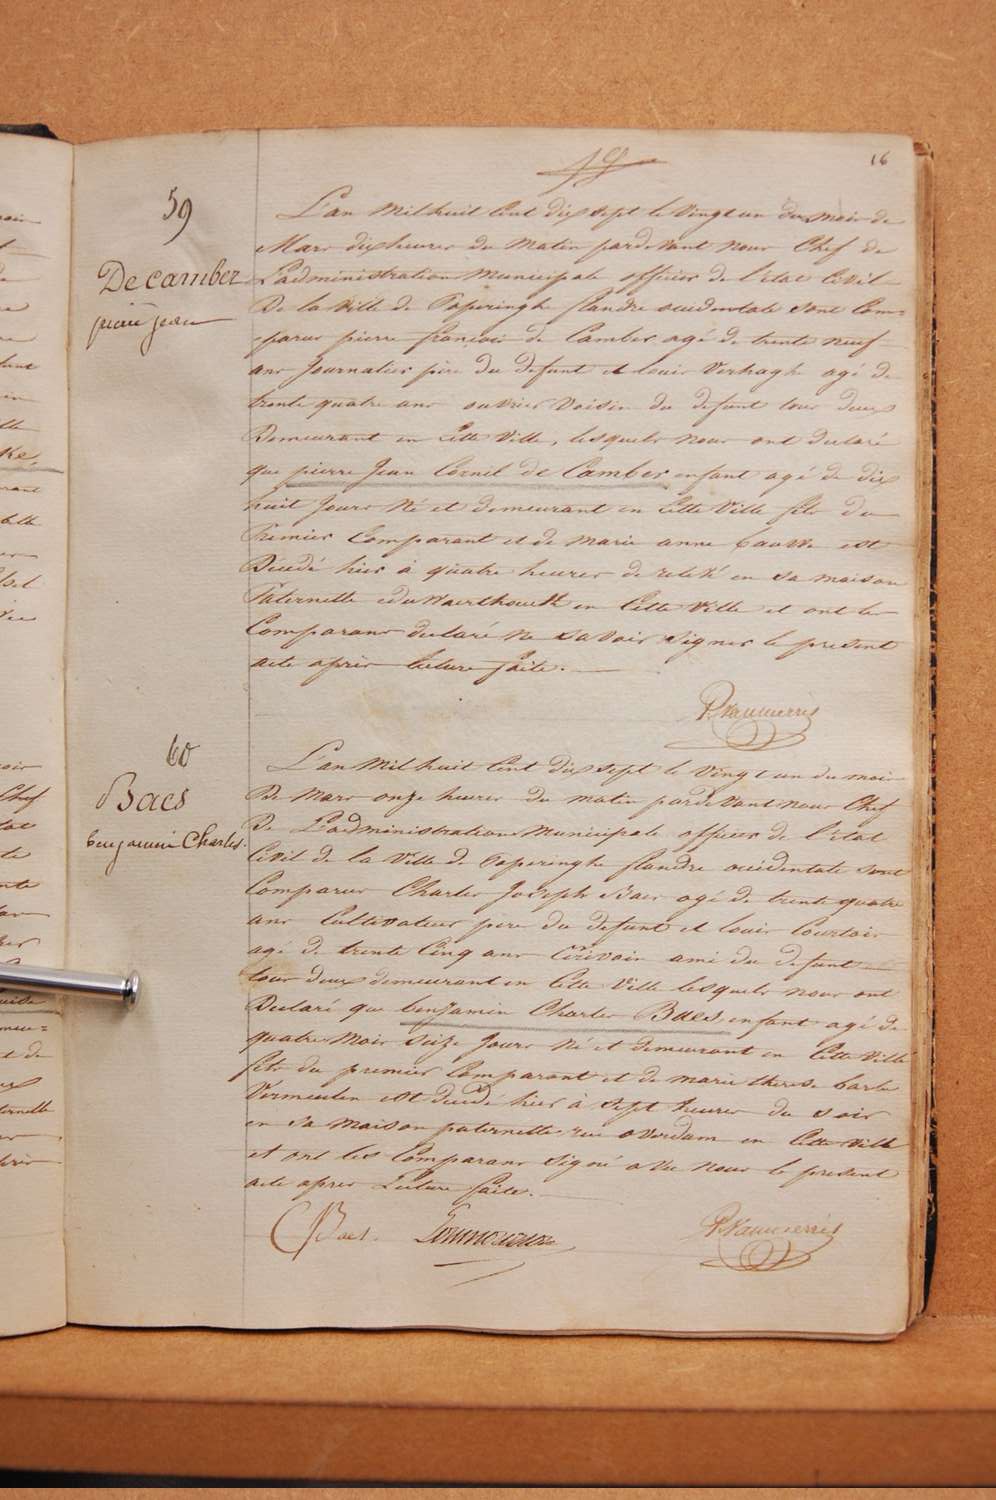 16
59
De camber
pierre jean
L'an Mil huit Cent dix sept le vingt un du mois de
Mars dix heures du Matin pardevant nous Chef de
L'administration Municipale officier de l'etat Civil
De la Ville de Poperinghe flandre occidentale sont Com=
=parus pierre françois de Camber agé de trente neuf
ans Journalier père du defunt et louis Verhaghe agé de
trente quatre ans ouvrier Voisin du defunt tous deux
Demeurant en Cette Ville, lesquels nous ont declaré
que pierre Jean Cornil de Camber enfant agé de dix
huit Jours Né et demeurant en Cette Ville fils du
Premier Comparant et de Marie anne est
Décédé hier à quatre heures de en sa maison
Paternelle en Cette Ville et ont les
Comparans declaré ne savoir Signer le present
acte après lecture faite.
60
Baes
benjamin Charles.
L'an Mil huit Cent dix sept le Vingt un du mois
De Mars onze heures du matin pardevant nous Chef
De L'administration Municipale officier de l'etat
Civil de la Ville de Poperinghe flandre occidentale sont
Comparus Charles Joseph Baes agé de trente quatre
ans Cultivateur père du defunt et louis Courtois
agé de trente Cinq ans Ecrivain ami du defunt
tous deux demeurant en Cette Ville lesquels nous ont
Declaré que benjamin Charles Baes, enfant agé de
quatre Mois Seize Jours Né et demeurant en Cette Ville
fils du premier Comparant et de marie therese barbe
Vermeulen est decedé hier à sept heures du soir
en sa Maison paternelle rue overdam en Cette Ville
et ont les Comparans Signé avec nous le present
acte apres Lecture faite.
CJBaes.